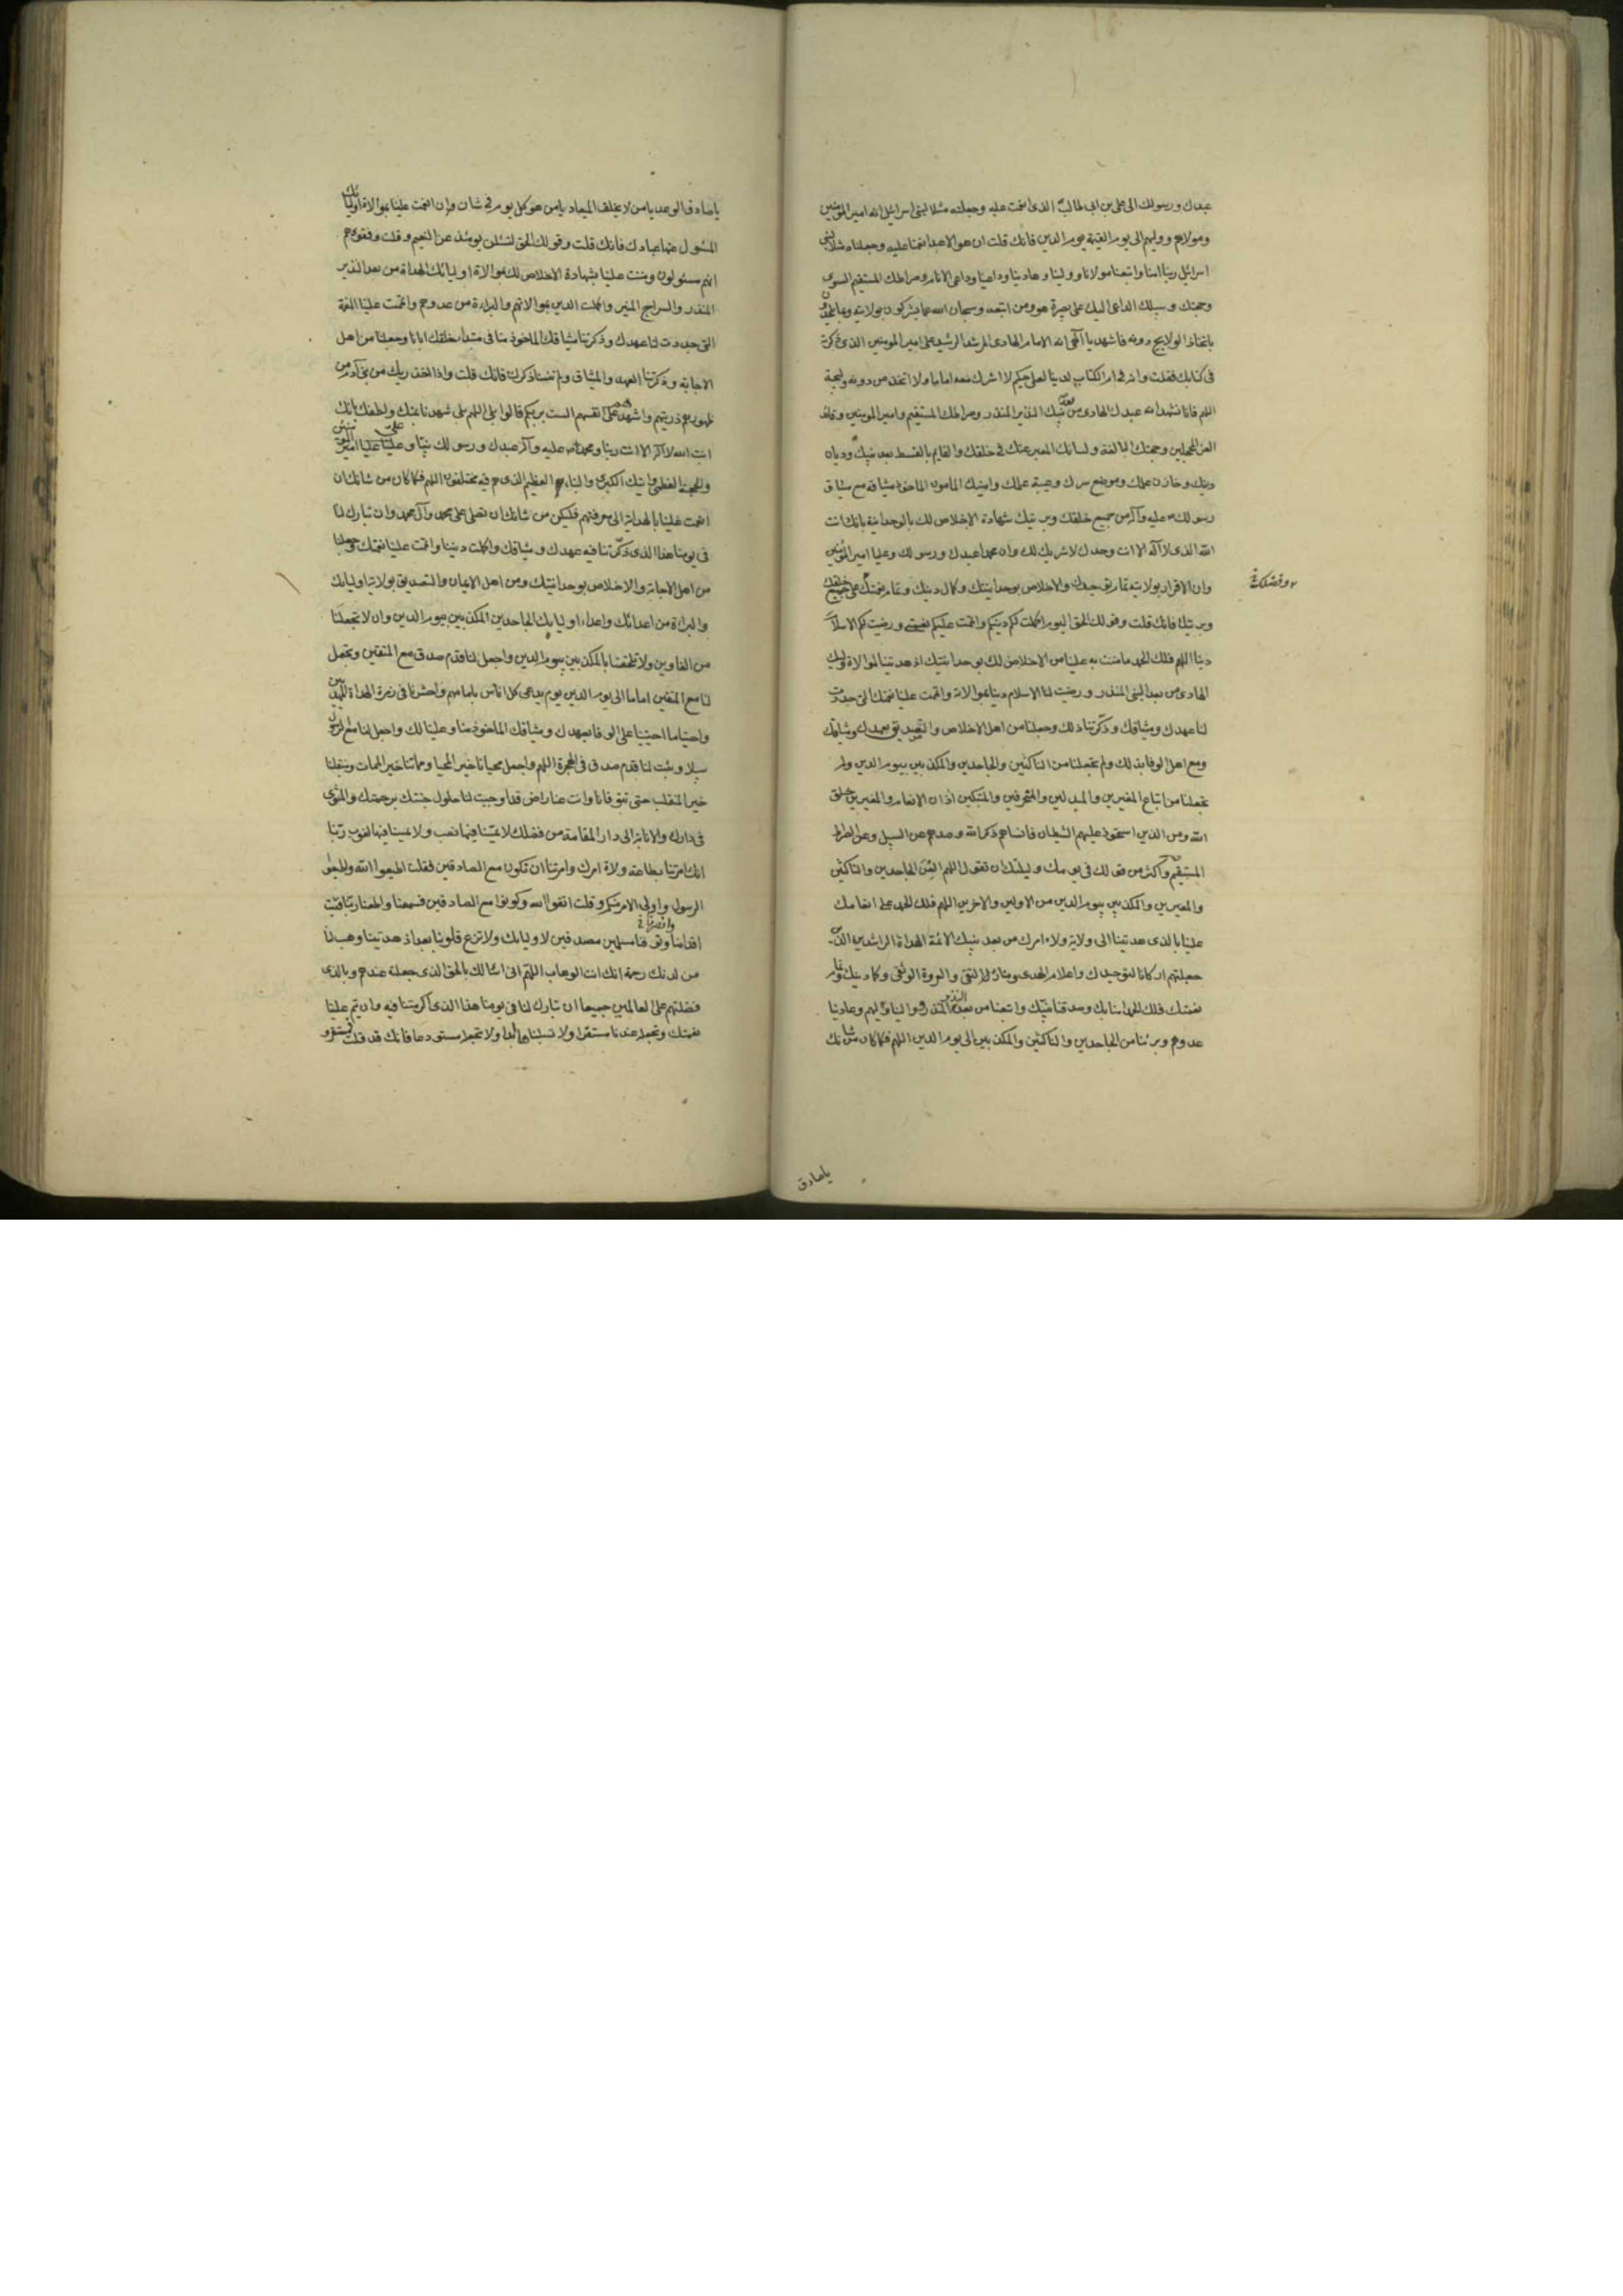 عبدك ورسولك الى علي بن ابي طالب الذى انعمت عليه وجعلته مثلا لبنى اسرائيل انه امير المؤمنين
ومولاهم ووليهم الى يوم القيمة يوم الدين فانك قلت ان هو الا عبد انعمنا عليه وجعلناه مثلا لبنى
اسرائيل ربنا امنا واتبعنا مولانا وولينا وهادينا وداعينا وداعى الانام وصراطك المستقيم السوى
وحجتك وسبيلك الداعى اليك على بصيرة هو ومن اتبعه وسبحان الله عما يشركون بولايته وبما يلحدون
باتخاذ الولايج دونه فاشهد يا الهى انه الامام الهادى المرشد الرشيد على امير المومنين الذى ذكرته
فى كتابك فقلت وانه فى ام الكتاب لدينا لعلى حكيم لا اشرك معه اماما ولا اتخذ من دونه وليجة
اللهم فانا نشهد انه عبدك الهادى من بعد نبيك النذير المنذر وصراطك المستقيم وامير المومنين وقائد
الغر المحجلين وحجتك البالغة ولسانك المعبر عنك فى خلقك والقايم بالقسط بعد نبيك وديان
دينك وخازن علمك وموضع سرك وعيبة علمك وامينك المامون الماخوذ ميثاقه مع ميثاق
رسولك ص عليه وآله من جميع خلقك وبريتك شهادة الاخلاص لك بالوحدانية بانك انت
الله الذى لا اله الا انت وحدك لا شريك لك وان محمدا عبدك ورسولك وعليا امير المؤمنين
وان الاقرار بولايته تمام توحيدك والاخلاص بوحدانيتك وكمال دينك وتمام نعمتك على جميع خلقك
وفضلك
وبريتك فانك قلت وقولك الحق اليوم اكملت لكم دينكم واتممت عليكم نعمتى ورضيت لكم الاسلام
دينا اللهم فلك الحمد ما مننت به علينا من الاخلاص لك بوحدانيتك اذ هديتنا لموالاة وليك
الهادى من بعد النبى المنذر ورضيت لنا الاسلام دينا بموالاته واتممت علينا نعمتك التى جددت
لنا عهدك وميثاقك وذكرتنا ذلك وجعلتنا من اهل الاخلاص والتصديق بعهدك وميثاقك
ومع اهل الوفا بذلك ولم تجعلنا من الناكثين والجاحدين والمكذبين بيوم الدين ولم
تجعلنا من اتباع المغيرين والمبدلين والمنحرفين والمبتكين اذان الانعام والمغيرين خلق
الله ومن الذين استحوذ عليهم الشيطان فانساهم ذكر الله وصدهم عن السبيل وعن الصراط
المستقيم واكثر من قولك فى يومك وليلتك ان تقول اللهم العن الجاحدين والناكثين
والمغيرين والمكذبين بيوم الدين من الاولين والاخرين اللهم فلك الحمد على انعامك
علينا بالذى هديتنا الى ولاية ولاة امرك من بعد نبيك الائمة الهداة الراشدين الذين
جعلتهم اركانا لتوحيدك واعلام الهدى ومنار التقى والعروة الوثقى وكمال دينك وتمام
نعمتك فلك الحمد امنا بك وصدقنا نبيك واتبعنا من بعده النذير المنذر ووالينا وليهم وعادينا
عدوهم وبرئنا من الجاحدين والناكثين والمكذبين الى يوم الدين اللهم فكما كان من شانك
ياصادق
ياصادق الوعد يا من لا يخلف الميعاد يا من هو كل يوم فى شان وان انعمت علينا بموالاة اوليائك
المسئول عنها عبادك فانك قلت وقولك الحق لتسئلن يومئذ عن النعيم وقلت وقفوهم
انهم مسئولون ومننت علينا بشهادة الاخلاص لك بموالاة اوليائك الهداة من بعد النذير
المنذر والسراج المنير واكملت الدين بموالاتهم والبراءة من عدوهم واتممت علينا النعمة
التى جددت لنا عهدك وذكرتنا ميثاقك الماخوذ منا فى مبتداء خلقك ايانا وجعلتنا من اهل
الاجابة وذكرتنا العهد والميثاق ولم تنسنا ذكرك فانك قلت واذ اخذ ربك من بنى آدم من
ظهورهم ذريتهم واشهدهم على انفسهم الست بربكم قالوا بلى اللهم بلى شهدنا بمنك ولطفك بانك
انت الله لا اله الا انت ربنا ومحمد ص عليه وآله عبدك ورسولك نبينا وعليا امير المؤمنين
والحجة العظمى وايتك الكبرى والنباء العظيم الذى هم فيه مختلفون اللهم فكما كان من شانك ان
انعمت علينا بالهداية الى معرفتهم فليكن من شانك ان تصلى على محمد وآل محمد وان تبارك لنا
فى يومنا هذا الذى ذكرتنا فيه عهدك وميثاقك واكملت ديننا واتممت علينا نعمتك وجعلتنا
من اهل الاجابة والاخلاص بوحدانيتك ومن اهل الايمان والتصديق بولاية اوليايك
والبراءة من اعدائك واعداء اوليايك الجاحدين المكذبين بيوم الدين وان لا تجعلنا
من الغاوين ولا تلحقنا بالمكذبين بيوم الدين واجعل لنا قدم صدق مع المتقين وتجعل
لنا مع المتقين اماما الى يوم الدين يوم يدعى كل اناس بامامهم واحشرنا فى زمرة الهداة المهديين
واحينا ما احييتنا على الوفا بعهدك وميثاقك الماخوذ منا وعلينا لك واجعل لنا مع الرسول
سبيلا وثبت لنا قدم صدق فى الهجرة اللهم واجعل محيانا خير المحيا ومماتنا خير الممات ومنقلبنا
خير المنقلب حتى توفانا وانت عنا راض قد اوجبت لنا حلول جنتك برحمتك والمثوى
فى دارك والانابة الى دار المقامة من فضلك لا يمسنا فيها نصب ولا يمسنا فيها لغوب ربنا
انك امرتنا بطاعة ولاة امرك وامرتنا ان نكون مع الصادقين فقلت اطيعوا الله واطيعوا
الرسول واولى الامر منكم وقلت اتقوا الله وكونوا مع الصادقين فسمعنا واطعنا ربنا فثبت
اقدامنا وتوفنا مسلمين مصدقين لاوليايك ولا تزغ قلوبنا بعد اذ هديتنا وهب لنا
من لدنك رحمة انك انت الوهاب اللهم انى اسالك بالحق الذى جعلته عندهم وبالذى
فضلتهم على العالمين جميعا ان تبارك لنا فى يومنا هذا الذى اكرمتنا فيه وان تتم علينا
نعمتك وتجعله عندنا مستقرا ولا تسلبناه ابدا ولا تجعله مستودعا فانك قد قلت فمستقر و